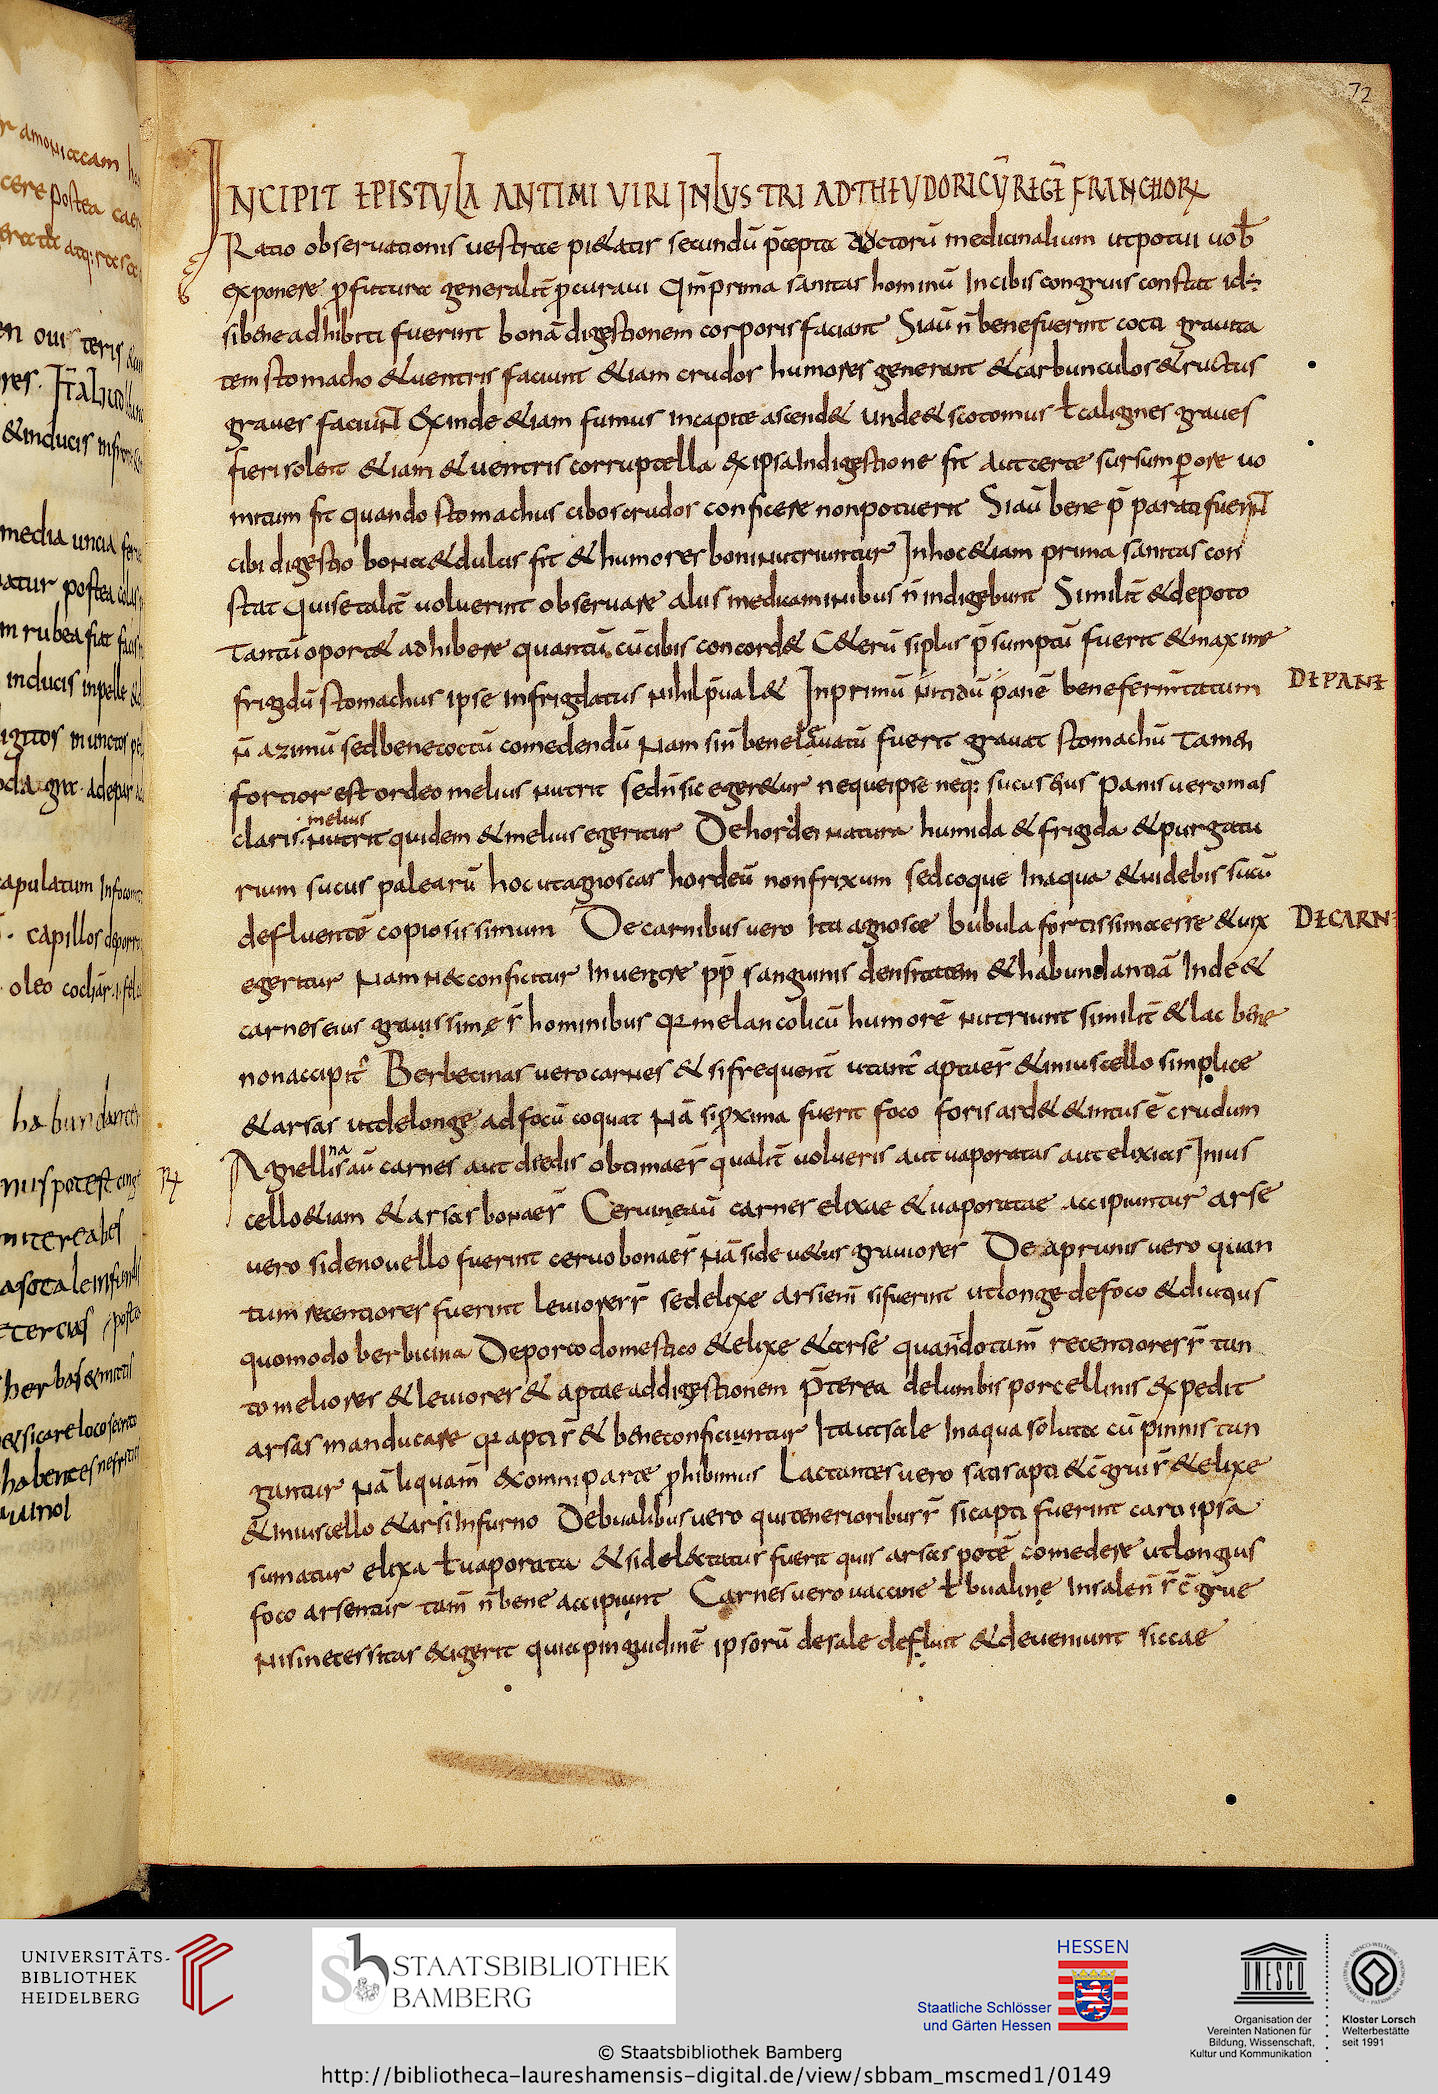 72
INCIPIT EPISTULA ANTIMI VIRI INLUSTRI AD THEUDORICŪ REGĒ FRANCHORꝜ
Ratio obseruationis uestrae pi&atis secundū p̄cepta auctorū medicinalium utpotui uob̄
exponere ꝓfutura generalit̄ ꝓcuraui Qm̄ prima sanitas hominū In cibis congruis constat id÷
si bene adhibiti fuerint bonā digestionem corporis faciant Si aū n̄ bene fuerint cocti grauita
tem stomacho & uentris faciunt &iam crudos humores generant & carbunculos & ructus
graues faciunt Exinde &iam fumus in capite ascend& unde & scotomus ł caligines graues
fieri solent &iam & uentris corruptella ex ipsa Indigestione fit aut certe sursum ꝑ ore uo
mitum fit quando stomachus cibos crudos conficere non potuerit Si aū bene p̄parati fuerint
cibi digestio bona & dulcis fit & humores boni nutriuntur In hoc &iam prima sanitas con
stat Qui se talit̄ uoluerint obseruare aliis medicaminibus n̄ indigebunt Similit̄ & de poto
tantū oport& adhibere quantū cū cibis concord& C&erū si plus p̄sumptū fuerit & maxime
frigidū stomachus ipse infrigdatus nihil p̄ual& In primū nitidū panē bene fermtatum
DE PANE
n̄ azimū sed bene coctū comedendū Nam si n̄ bene leuatū fuerit grauat stomachū tamen
fortior est ordeo melius nutrit sed n̄ sic eger&ur neque ipse neq: sucus eius Panis uero mas
claris melius nutrit quidem & melius egeritur De hordei natura humida & frigida & purgatu
rium sucus palearū hoc ita agnoscas hordeū non frixum sed coque In aqua & uidebis sucū
defluentē copiosissimum De carnibus uero Ita agnosce bubula fortissima certe & uix
DE CARN
egeritur Nam n& conficitur In uentre pp̄ sanguinis densitatem & habundantiā Inde &
carnes eius grauissimę s̄ hominibus quia melancolicū humorē nutriunt similit̄ & lac bene
non accipit̄ Berbecinas uero carnes & si frequent̄ utant̄ aptaes̄ & in iuscello simplice
& arsas ut de longe ad focū coquat Nā si ꝓxima fuerit foco foris ard& & intus ē crudum
Agnellinas aū carnes aut dedis obtimaes̄ qualit̄ uolueris aut uaporatas aut elixas In ius
cello &iam & arsas bonaes̄ Ceruineaū carnes elixae & uaporatae accipiuntur arse
vero si de nouello fuerint ceruo bonaes̄ Nā si de u&us grauiores De aprunis uero quan
tum recentiores fuerint leuiores s̄ sed elixe arsiem̄ si fuerint ut longe de foco & diutius
quomodo berbicina De porco domestico & elixe & arse quando tam̄ recentiores s̄ tan
to meliores & leuiores & aptae ad digestionem p̄terea de lumbis porcellinis expedit
arsas manducare quia apti s̄ & bene conficiuntur Ita ut sale In aqua soluta cū pinnis tan
guntur Nā liquam̄ ex omni parte ꝓhibimus Lactantes uero satis apti & c̄grui s̄ & elixe
& In iuscello & arsi In furno De bualibus uero qui tenerioribus s̄ si capti fuerint caro ipsa
sumatur elixa ł uaporata & si delectatus fuerit quis arsas potē comedere ut longius
foco arsentur tam̄ n̄ bene accipiunt Carnes uero uaccine ł bualinę In sale n̄ s̄ c̄grue
nisi necessitas exigerit quia pinguidinē ipsorū de sale defluit & deueniunt siccae
UNIVERSITÄTS-
BIBLIOTHEK
HEIDELBERG
STAATSBIBLIOTHEK
BAMBERG
HESSEN
Staatliche Schlösser
und Gärten Hessen
UNESCO
Organisation der
Vereinten Nationen für
Bildung, Wissenschaft,
Kultur und Kommunikation
Kloster Lorsch
Welterbestätte
seit 1991
© Staatsbibliothek Bamberg
http://bibliotheca-laureshamensis-digital.de/view/sbbam_mscmed1/0149